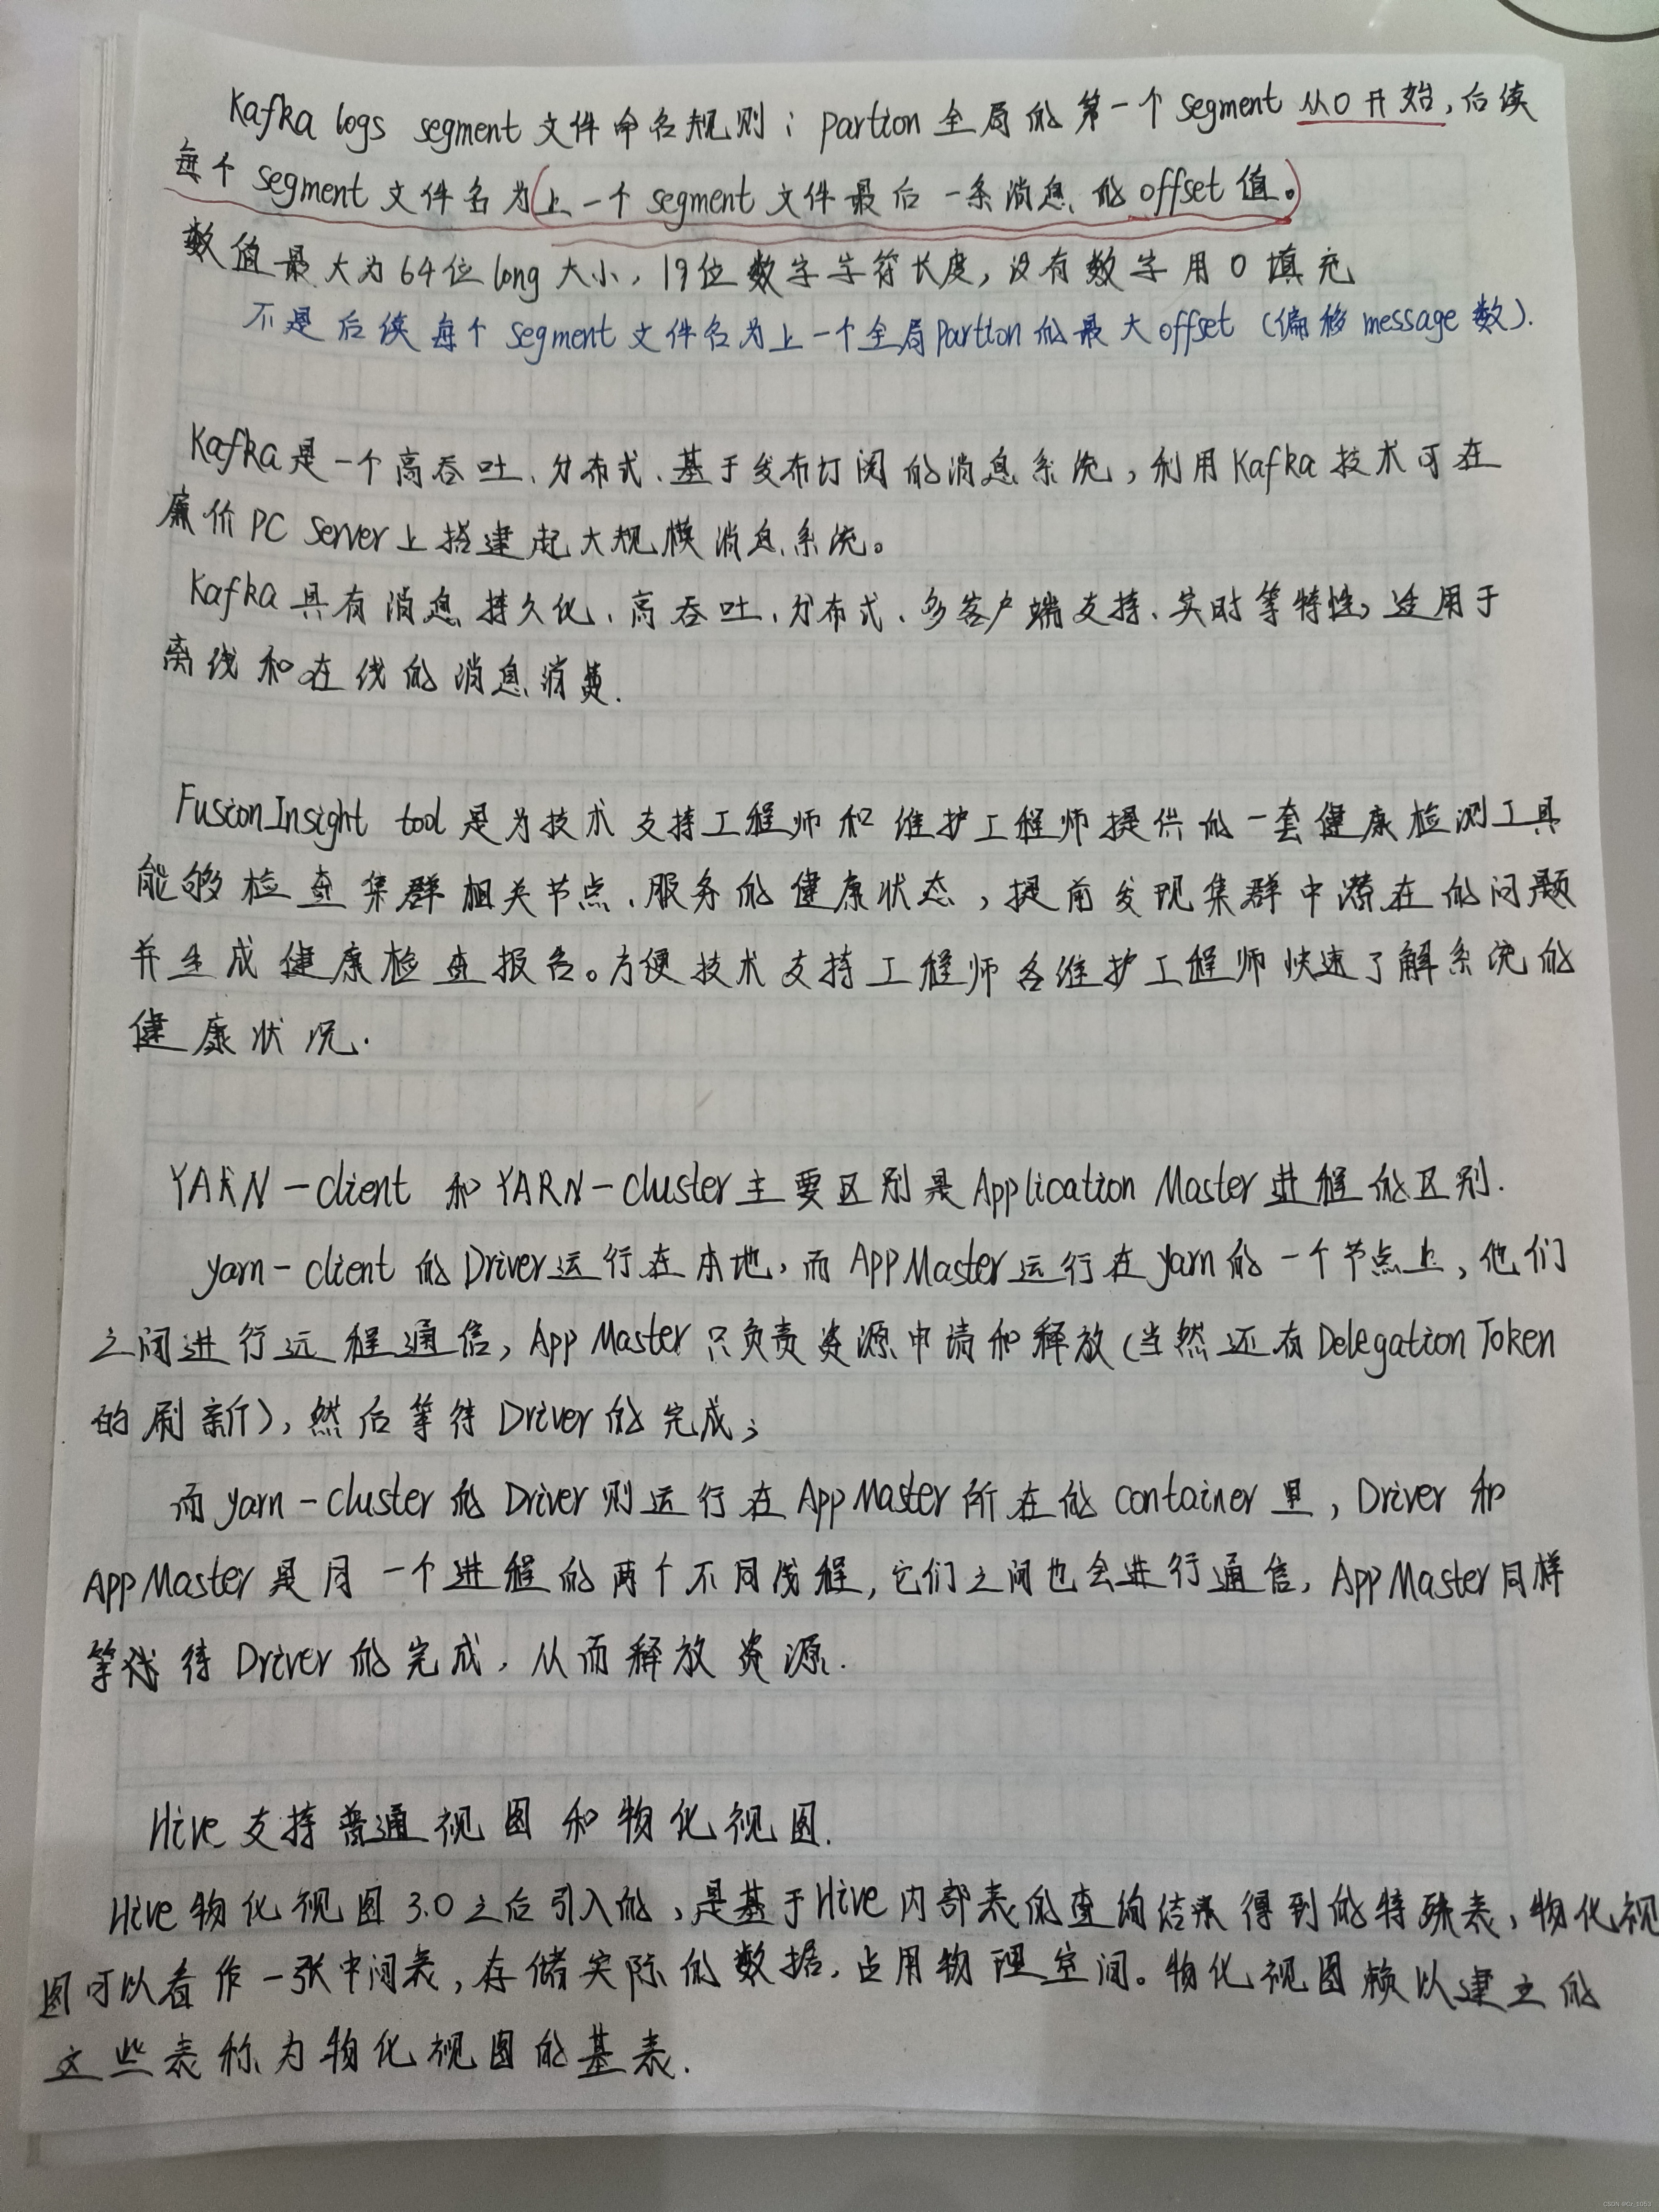 Kafka logs segment文件命名规则：partion全局的第一个segment从0开始，后续
每个segment文件名为(上一个segment文件最后一条消息的offset值。)
数值最大为64位long大小，19位数字字符长度，没有数字用0填充
不是后续每个segment文件名为上一个全局partion的最大offset（偏移message数）.
Kafka是一个高吞吐、分布式、基于发布订阅的消息系统，利用Kafka技术可在
廉价PC Server上搭建起大规模消息系统。
Kafka具有消息持久化、高吞吐、分布式、多客户端支持、实时等特性，适用于
离线和在线的消息消费.
FusionInsight tool是为技术支持工程师和维护工程师提供的一套健康检测工具
能够检查集群相关节点、服务的健康状态，提前发现集群中潜在的问题
并生成健康检查报告。方便技术支持工程师各维护工程师快速了解系统的
健康状况.
YARN-client 和YARN-cluster主要区别是Application Master进程的区别.
yarn-client的Driver运行在本地，而AppMaster运行在yarn的一个节点上，他们
之间进行远程通信，AppMaster只负责资源申请和释放(当然还有Delegation Token
的刷新)，然后等待Driver的完成；
而yarn-cluster的Driver则运行在AppMaster所在的container里，Driver和
AppMaster是同一个进程的两个不同线程，它们之间也会进行通信，AppMaster同样
等待Driver的完成，从而释放资源.
Hive支持普通视图和物化视图.
Hive物化视图3.0之后引入的，是基于Hive内部表的查询结果得到的特殊表，物化视
图可以看作一张中间表，存储实际的数据，占用物理空间。物化视图赖以建立的
这些表称为物化视图的基表.